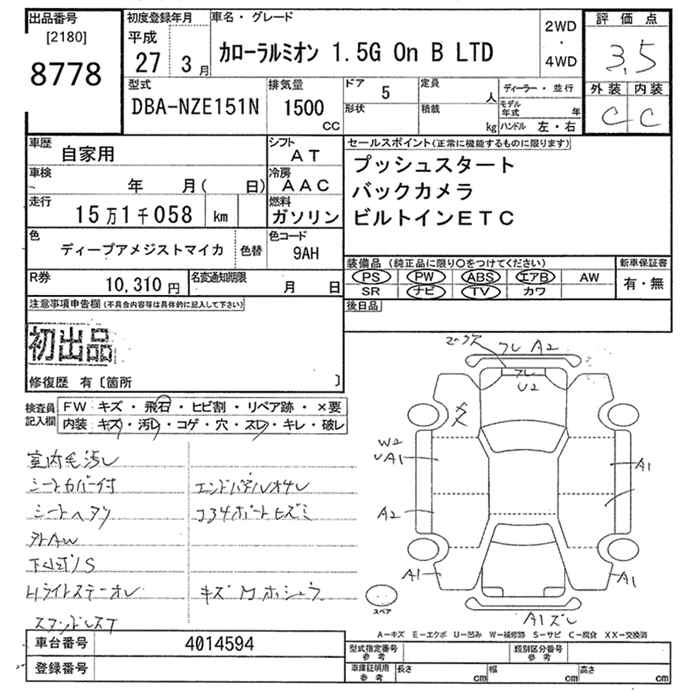 出品番号 初度登録年月 車名・グレード 2WD 評価点
[2180] 平成 ・
8778 27 3月 カローラルミオン 1.5G On B LTD 4WD 3.5
型式 排気量 ドア 5 定員 人 ディーラー・並行 外装 内装
DBA-NZE151N 1500 CC 形状 積載 kg モデル年式 年 C C
ハンドル 左・右
車歴 自家用 シフト AT セールスポイント(正常に機能するものに限ります)
車検 年 月( 日) 冷房 AAC プッシュスタート
走行 15万1千058 km 燃料 ガソリン バックカメラ
色 ディープアメジストマイカ 色替 色コード 9AH ビルトインETC
R券 10,310円 名変通知期限 月 日 装備品 (純正品に限り○をつけてください) 新車保証書
PS PW ABS エアB AW 有・無
SR ナビ TV カワ
注意事項申告欄(不具合内容等は具体的に記入して下さい) 後日品
初出品
修復歴 有〔箇所 〕
検査員記入欄 FW キズ・飛石・ヒビ割・リペア跡・×要
内装 キズ・汚レ・コゲ・穴・スレ・キレ・破レ
フレ A2
U2
W2
UA1 A1
A2
A1 A1
A1ズレ
室内毛汚レ
シートカバー付
シートヘタリ
外AW
下廻サビS
スペア
A-キズ E-エクボ U-凹み W-補修跡 S-サビ C-腐食 XX-交換済
車台番号 4014594 型式指定番号参考 類別区分番号参考
登録番号 車庫証明用参考 長さ cm 幅 cm 高さ cm